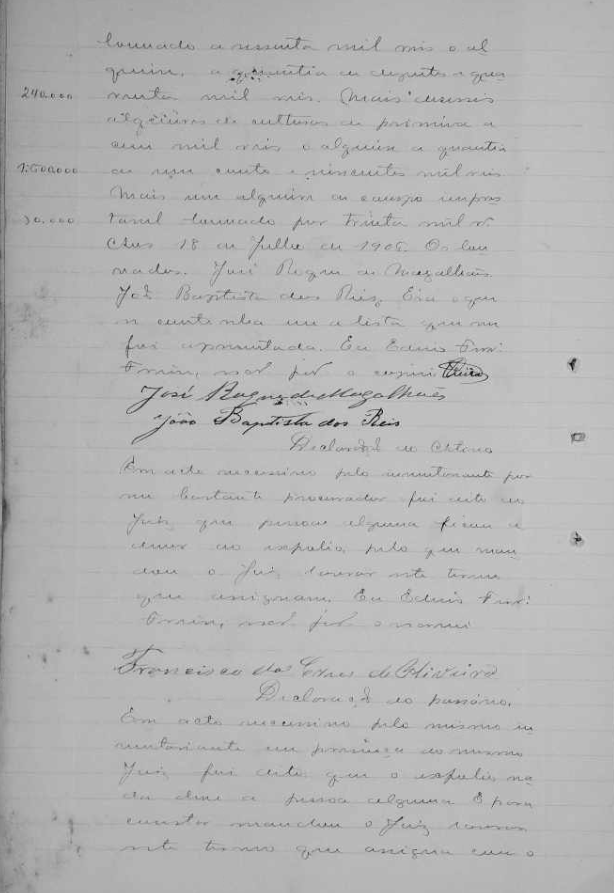 louvado a sessenta mil reis o al
queire, a quantia de duzentos e qua
240.000 renta mil reis. Mais dezesseis
alqueires de culturas de primeira a
cem mil reis o alqueire a quantia
1:600.000 de um conto e seiscentos mil reis
Mais um alqueire de campo impres
30.000 tavel louvado por trinta mil rs.
18 de Julho de 1906. Os lou
vados. José Roque de Magalhães
João Baptista dos Reis. Era o que
se continha em a lista que me
foi apresentada. Eu
o escrivi
José Roque de Magalhães
João Baptista dos Reis
Declaração do
Em acto successivo pelo inventariante por
seu bastante procurador foi dito ao
Juiz que pessoa alguma ficou a
dever ao espolio, pelo que man
dou o Juiz lavrar este termo
que assignam. Eu
o escrivi
Francisco das de Oliveira
Declaração do passivo.
Em acto successivo pelo mesmo in
ventariante em presença do mesmo
Juiz foi dito que o espolio na
da deve a pessoa alguma E para
constar mandou o Juiz lavrar
este termo que assigna com o